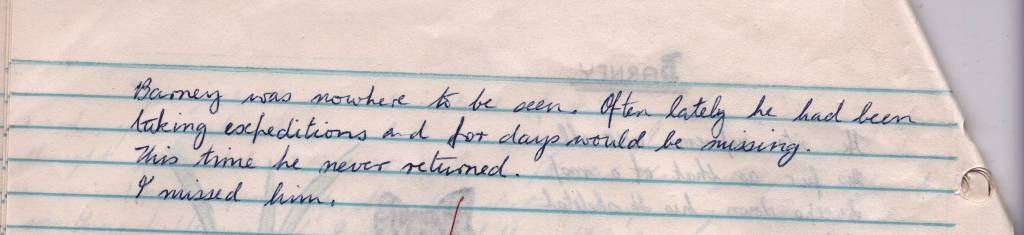 Barney was nowhere to be seen. Often lately he had been
taking expeditions and for days would be missing.
This time he never returned.
I missed him.